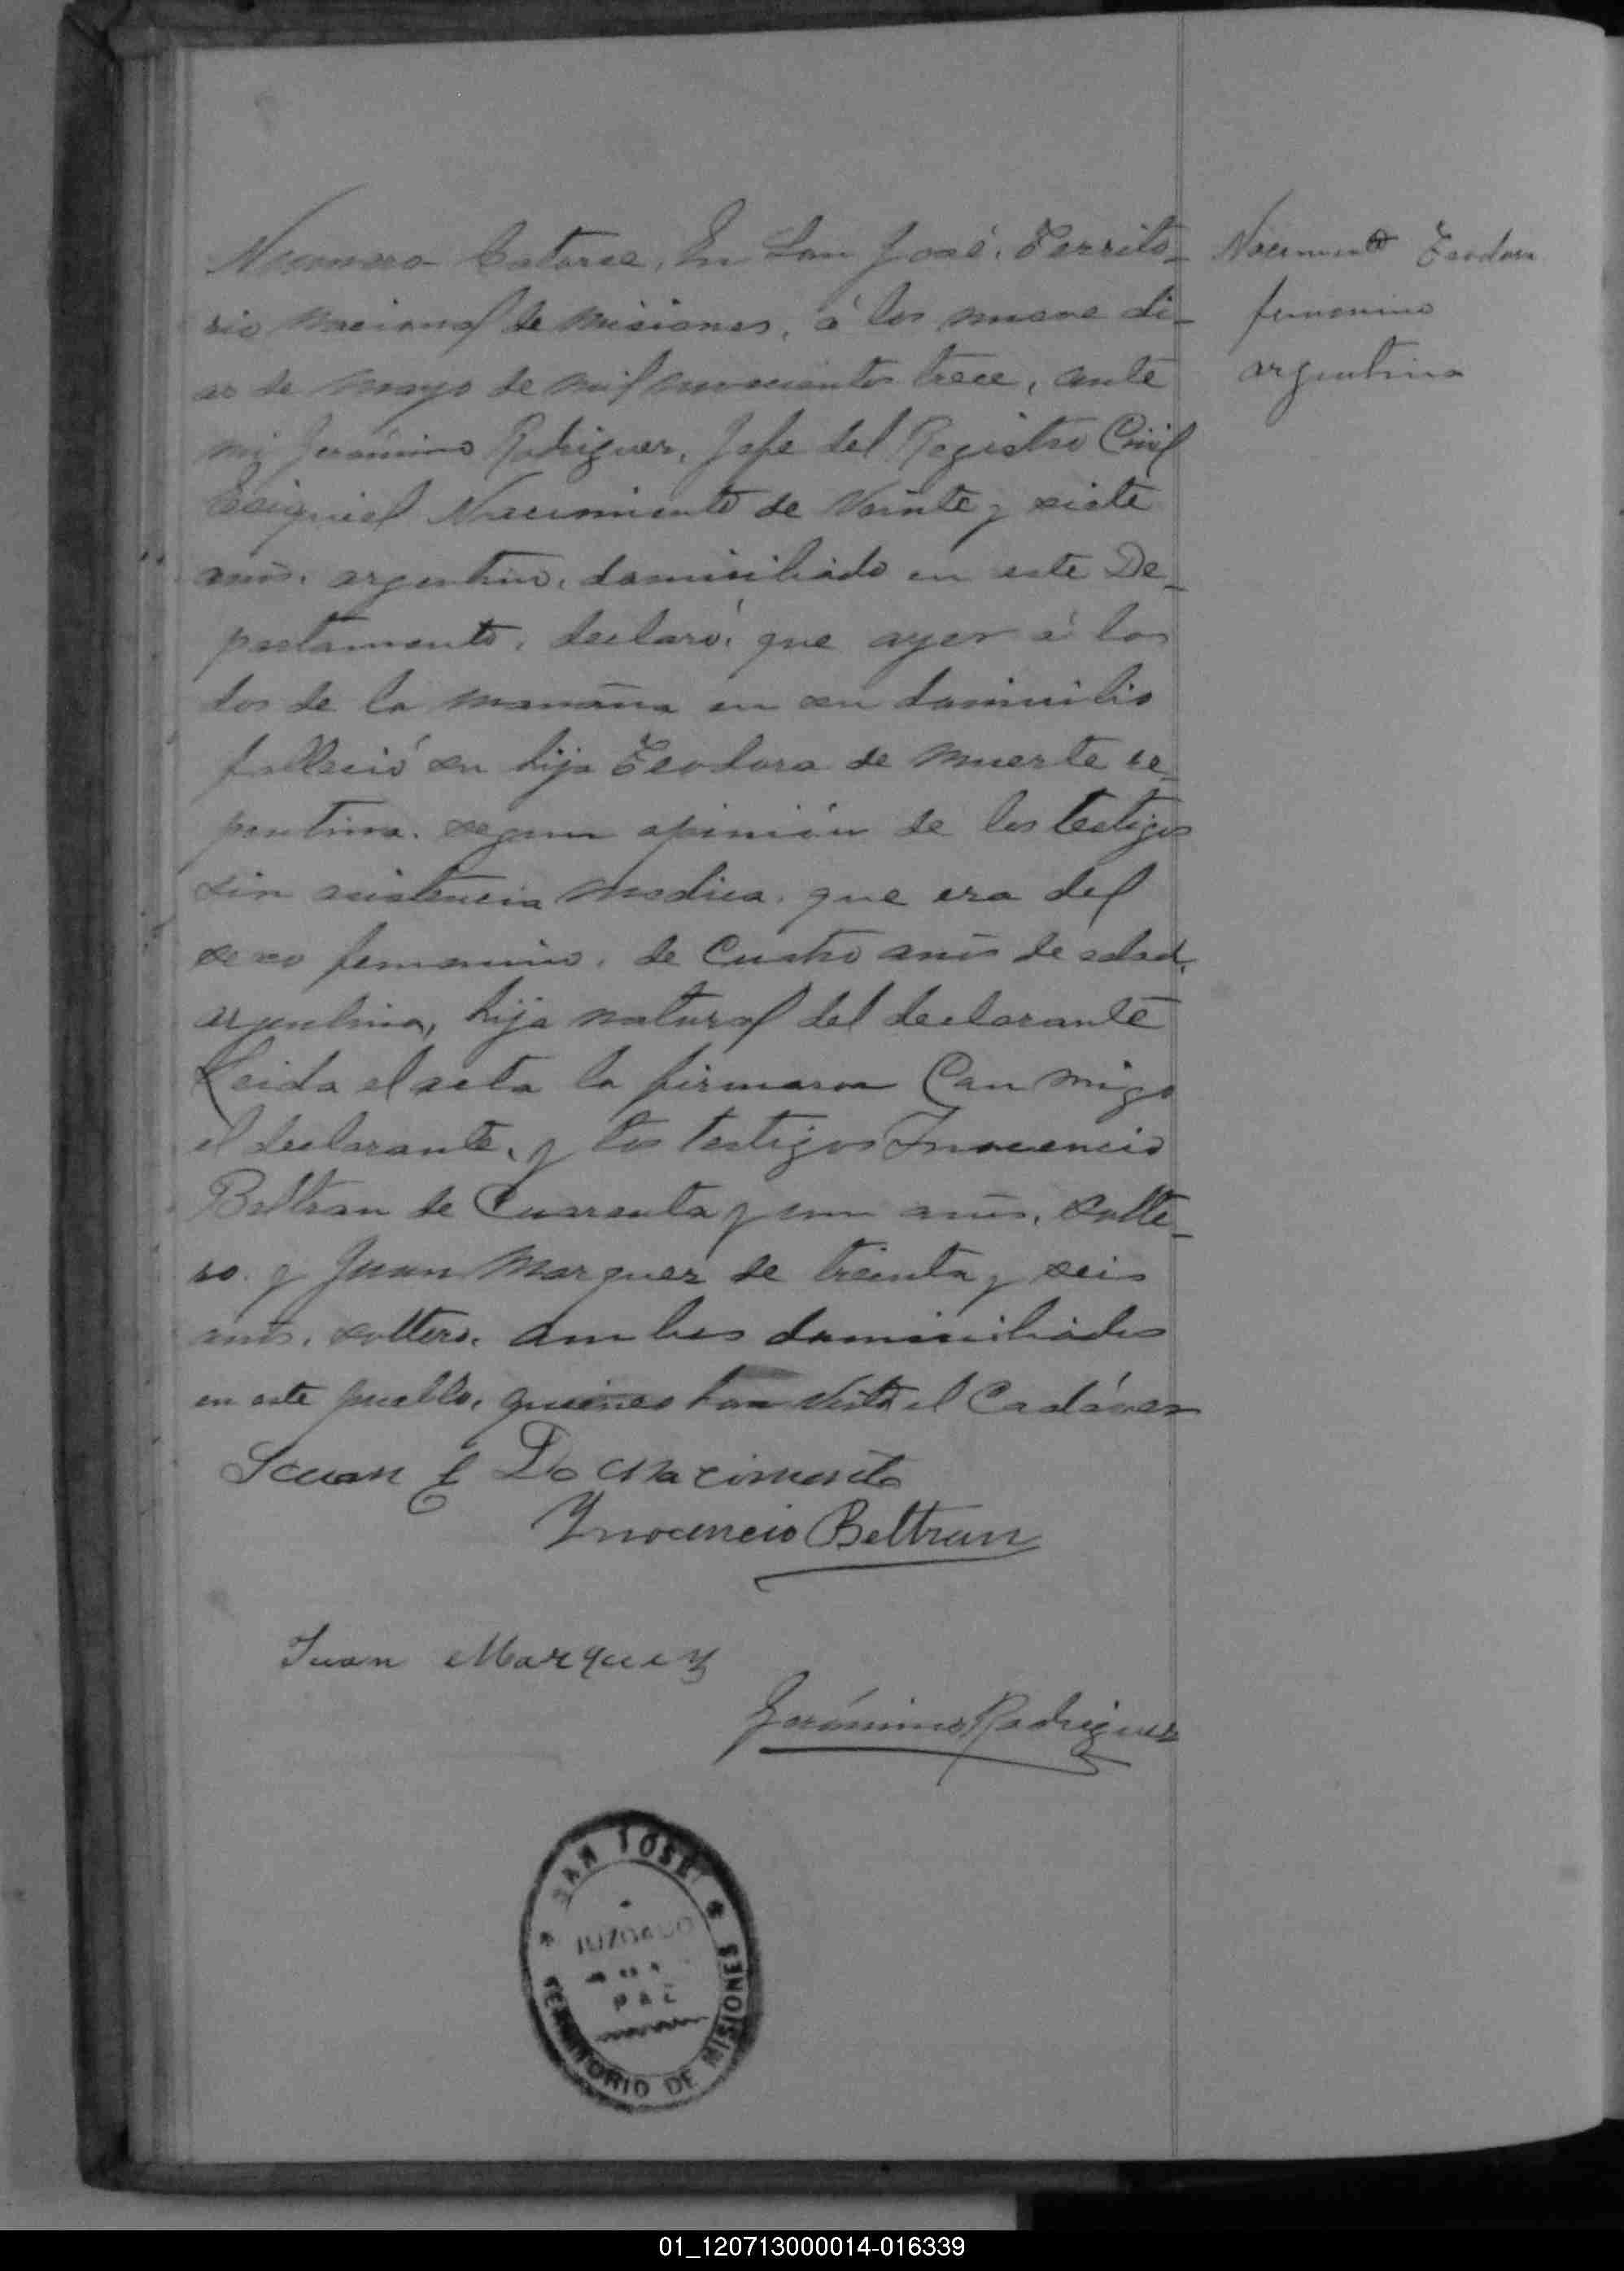 Numero Catorce, En San José, Territo-
rio nacional de Misiones, á los nueve di-
as de mayo de mil novecientos trece, ante
mi Jerónimo Rodriguez, Jefe del Registro Civil
Nacimiento de Veinte y siete
años, argentino, domiciliado en este De-
partamento, declaró: que ayer á las
dos de la manaña en su domicilio
falleció su hija Teodora de muerte re-
pentina, segun opinión de los testigos
sin asistencia medica, que era del
sexo femenino, de Cuatro años de edad,
argentina, hija natural del declarante
Leida el acta la firmaron Con migo
el declarante, y los testigos Inocencio
Beltran de Cuarenta y un años, solte-
ro y Juan Marquez de treinta y seis
años, soltero, ambos domiciliados
en este pueblo, quienes han visto el Cadáver
Juan E Do Nacimento
Ynocencio Beltran
Juan Marquez
Jerónimo Rodriguez
Nacimiento Teodora
femenino
argentina
SAN JOSE
JUZGADO
DE
PAZ
TERRITORIO DE MISIONES
01_120713000014-016339